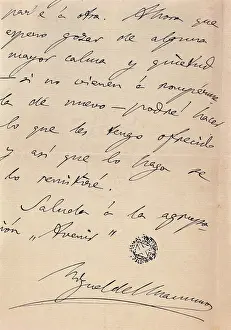 paré á otra. Ahora que
espero gozar de alguna
mayor calma y quietud
— si no vienen á romperme
la de nuevo — podré hacer
lo que les tengo ofrecido
y así que lo haga se
lo remitiré.
Saluda á la agrupa
ción „Avenir"
Miguel de Unamuno